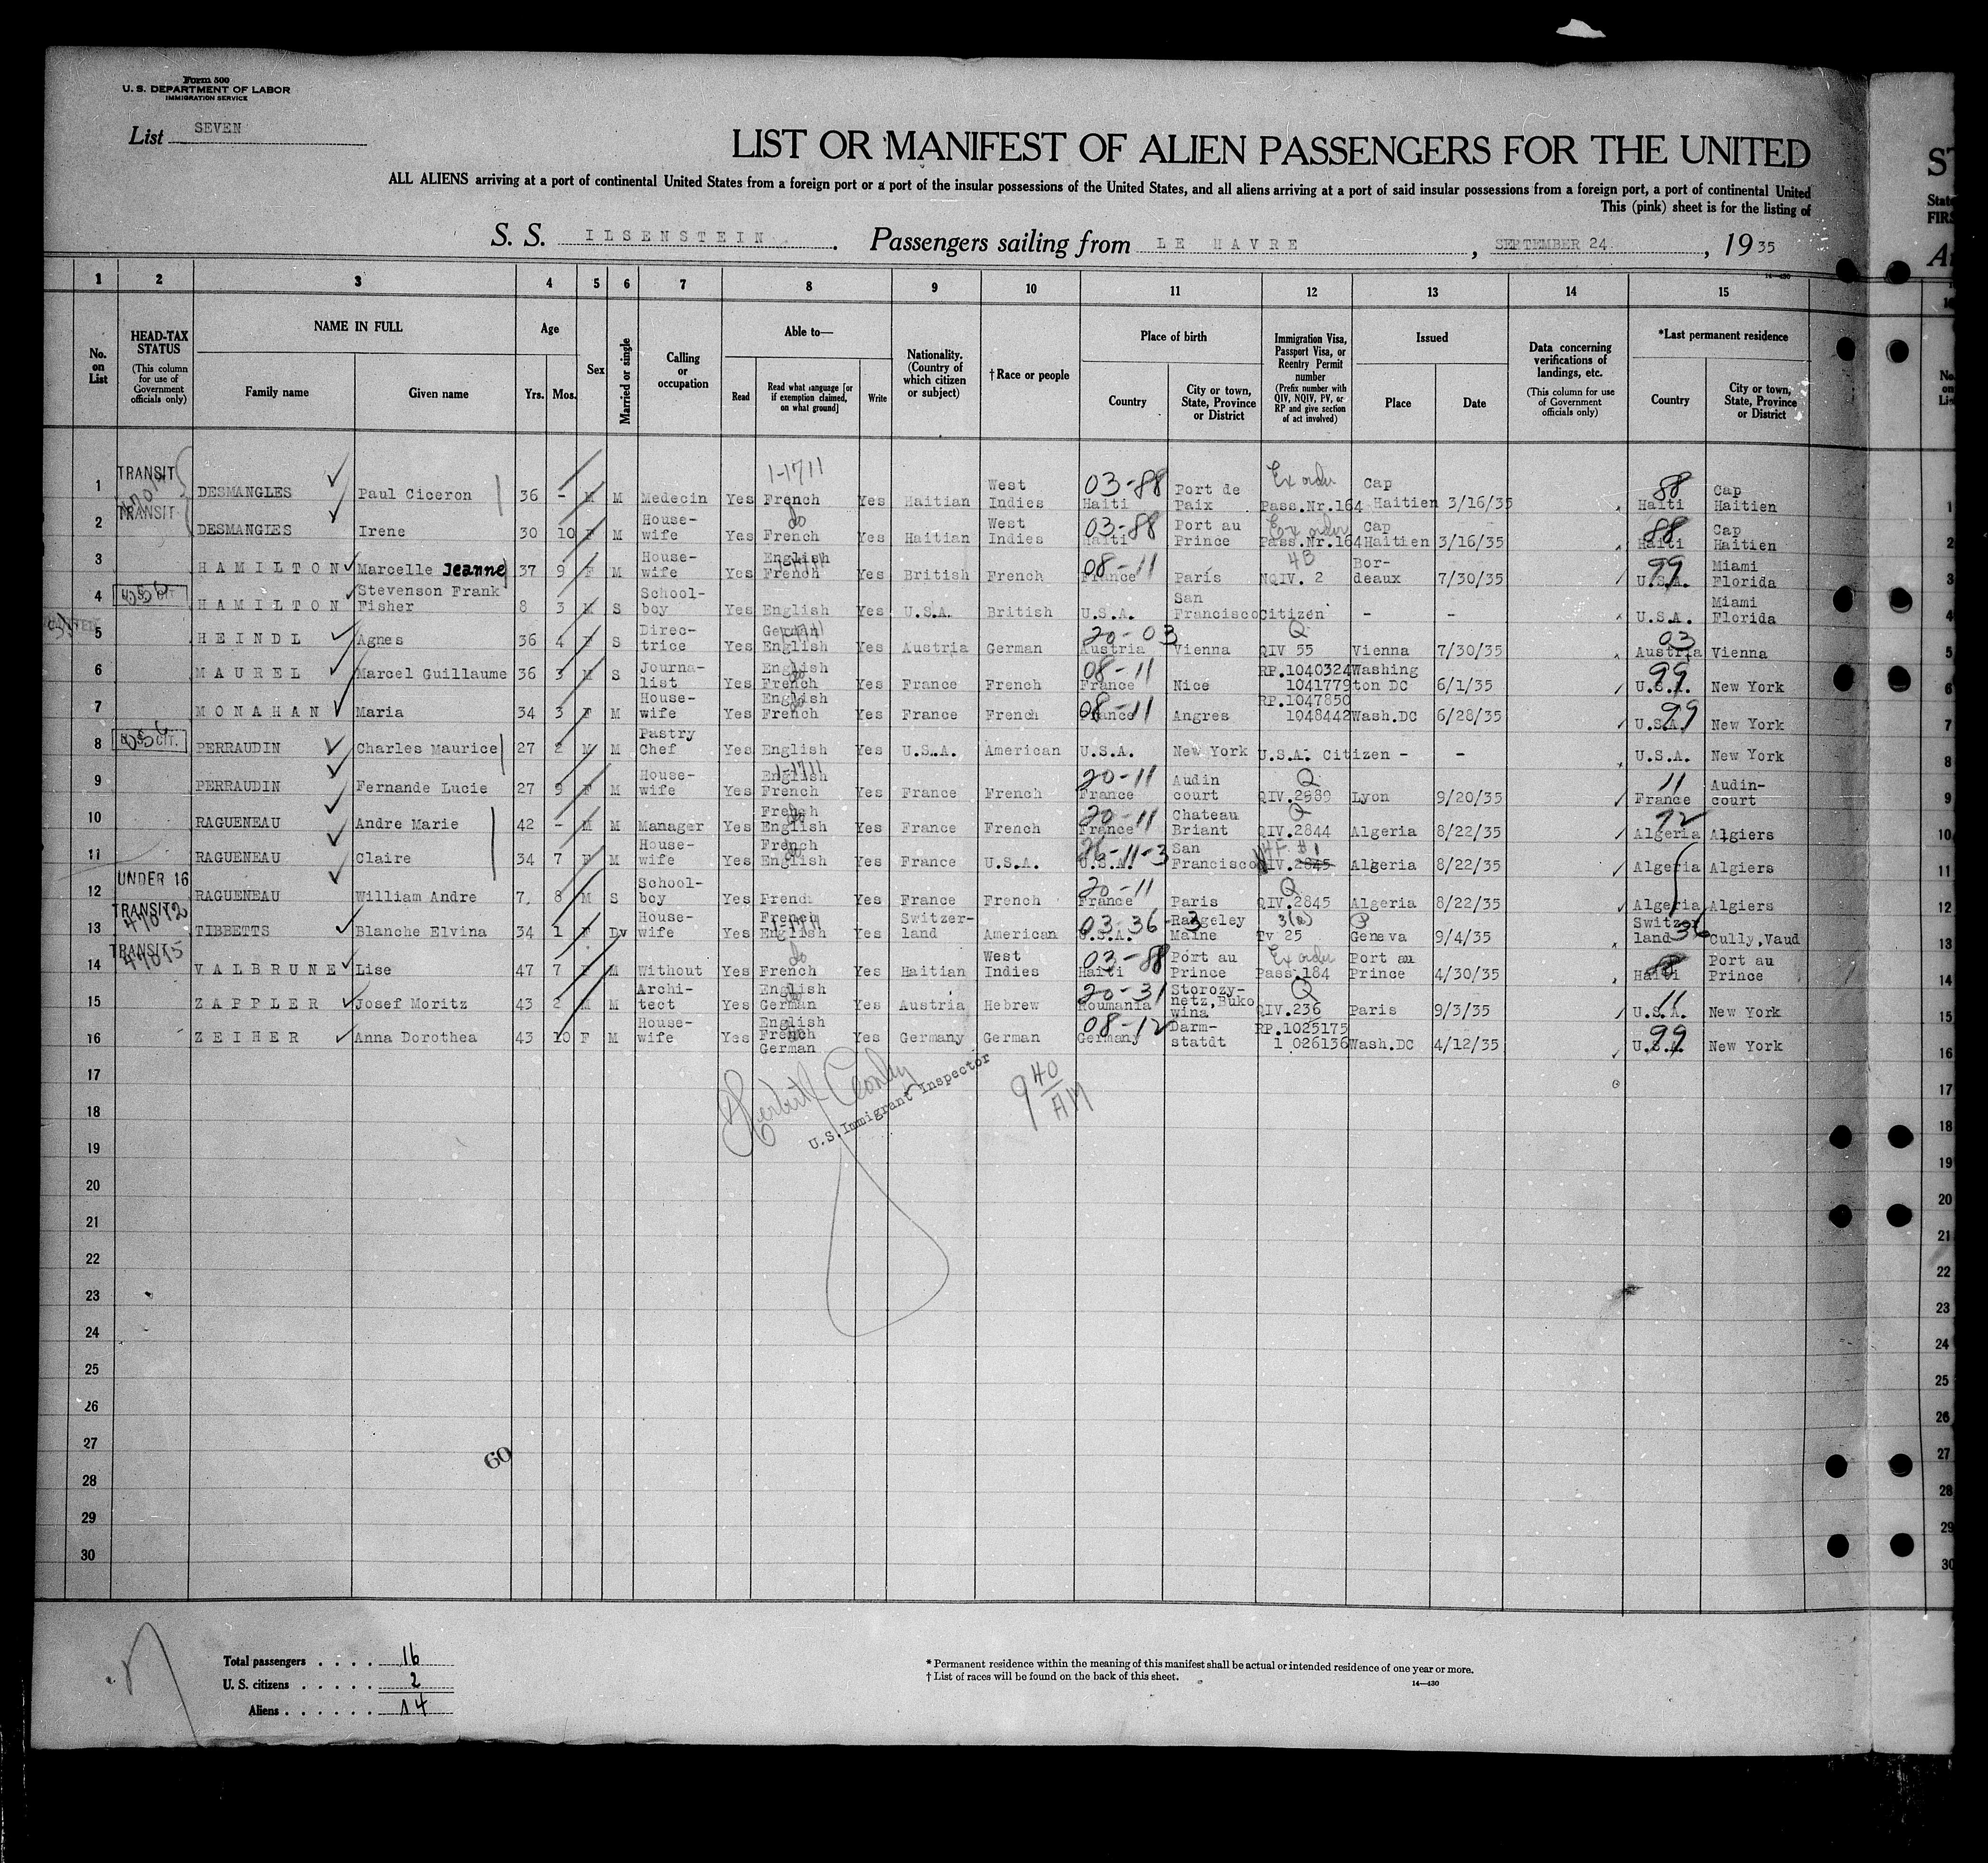 Form 500
U. S. DEPARTMENT OF LABOR
IMMIGRATION SERVICE
List SEVEN
LIST OR MANIFEST OF ALIEN PASSENGERS FOR THE UNITED
ALL ALIENS arriving at a port of continental United States from a foreign port or a port of the insular possessions of the United States, and all aliens arriving at a port of said insular possessions from a foreign port, a port of continental United
This (pink) sheet is for the listing of
S. S. ILSENSTEIN. Passengers sailing from LE HAVRE, SEPTEMBER 24, 1935
14—430
1 2 3 4 5 6 7 8 9 10 11 12 13 14 15
No. on List
HEAD-TAX STATUS
(This column for use of Government officials only)
NAME IN FULL
Family name Given name
Age
Yrs. Mos.
Sex
Married or single
Calling or occupation
Able to—
Read Read what language [or if exemption claimed, on what ground] Write
Nationality. (Country of which citizen or subject)
†Race or people
Place of birth
Country City or town, State, Province or District
Immigration Visa, Passport Visa, or Reentry Permit number
(Prefix number with QIV, NQIV, PV, or RP and give section of act involved)
Issued
Place Date
Data concerning verifications of landings, etc.
(This column for use of Government officials only)
*Last permanent residence
Country City or town, State, Province or District
1 TRANSIT DESMANGLES Paul Ciceron 36 - M M Medecin Yes 1-1711 French Yes Haitian West Indies 03-88 Haiti Port de Paix Ex order Pass.Nr.164 Cap Haitien 3/16/35 88 Haiti Cap Haitien
2 TRANSIT DESMANGLES Irene 30 10 F M House-wife Yes do French Yes Haitian West Indies 03-88 Haiti Port au Prince Ex order Pass.Nr.164 Cap Haitien 3/16/35 88 Haiti Cap Haitien
3 HAMILTON Marcelle Jeanne 37 9 F M House-wife Yes English French Yes British French 08-11 France Paris 4B NQIV. 2 Bor-deaux 7/30/35 99 U.S.A. Miami Florida
4 HAMILTON Stevenson Frank Fisher 8 3 M S School-boy Yes English Yes U.S.A. British U.S.A. San Francisco Citizen - - U.S.A. Miami Florida
5 HEINDL Agnes 36 4 F S Direc-trice Yes German English Yes Austria German 20-03 Austria Vienna Q QIV 55 Vienna 7/30/35 03 Austria Vienna
6 MAUREL Marcel Guillaume 36 3 M S Journa-list Yes English French Yes France French 08-11 France Nice RP.1040324 1041779 Washing ton DC 6/1/35 99 U.S.A. New York
7 MONAHAN Maria 34 3 F M House-wife Yes English French Yes France French 08-11 France Angres RP.1047850 1048442 Wash.DC 6/28/35 99 U.S.A. New York
8 U.S. CIT. PERRAUDIN Charles Maurice 27 2 M M Pastry Chef Yes English Yes U.S.A. American U.S.A. New York U.S.A. Citizen - - U.S.A. New York
9 PERRAUDIN Fernande Lucie 27 9 F M House-wife Yes English 1-1711 French Yes France French 20-11 France Audin court Q QIV.2989 Lyon 9/20/35 11 France Audin-court
10 RAGUENEAU Andre Marie 42 - M M Manager Yes French do English Yes France French 20-11 France Chateau Briant Q QIV.2844 Algeria 8/22/35 72 Algeria Algiers
11 RAGUENEAU Claire 34 7 F M House-wife Yes French do English Yes France U.S.A. U.S.A. San Francisco 2845 Algeria 8/22/35 Algeria Algiers
12 UNDER 16 RAGUENEAU William Andre 7, 8 M S School-boy Yes French Yes France French 20-11 France Paris Q QIV.2845 Algeria 8/22/35 Algeria Algiers
13 TRANSIT TIBBETTS Blanche Elvina 34 1 F Dv House-wife Yes French English Yes Switzer-land American 03-36-3 U.S.A. Rangeley Maine 3(a) Tv 25 Geneva 9/4/35 Switzer land 36 Cully,Vaud
14 TRANSIT 47075 VALBRUNE Lise 47 7 F M Without Yes do French Yes Haitian West Indies 03-88 Haiti Port au Prince Ex order Pass.184 Port au Prince 4/30/35 Haiti Port au Prince
15 ZAPPLER Josef Moritz 43 2 M M Archi-tect Yes English German Yes Austria Hebrew 20-31 Roumania Storozy-netz,Buko wina Q QIV.236 Paris 9/3/35 11 U.S.A. New York
16 ZEIHER Anna Dorothea 43 10 F M House-wife Yes English French German Yes Germany German 08-12 Germany Darm-statdt RP.1025175 1 026136 Wash.DC 4/12/35 99 U.S.A. New York
17
18
19
20
21
22
23
24
25
26
27
28
29
30
U.S. Immigrant Inspector
9 40 AM
60
Total passengers . . . . 16
U. S. citizens . . . . . 2
Aliens . . . . . . 14
* Permanent residence within the meaning of this manifest shall be actual or intended residence of one year or more.
† List of races will be found on the back of this sheet.
14—430